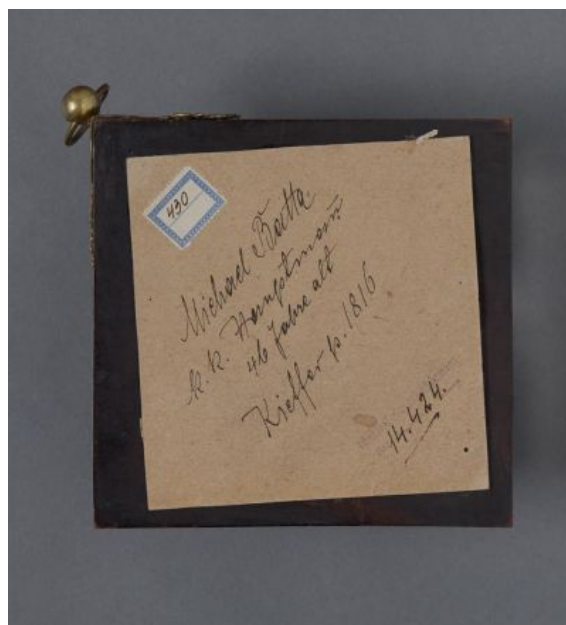 430
Michael Batta
k. k. Hauptmann
46 Jahre alt
Kieffer p. 1816
14.424.